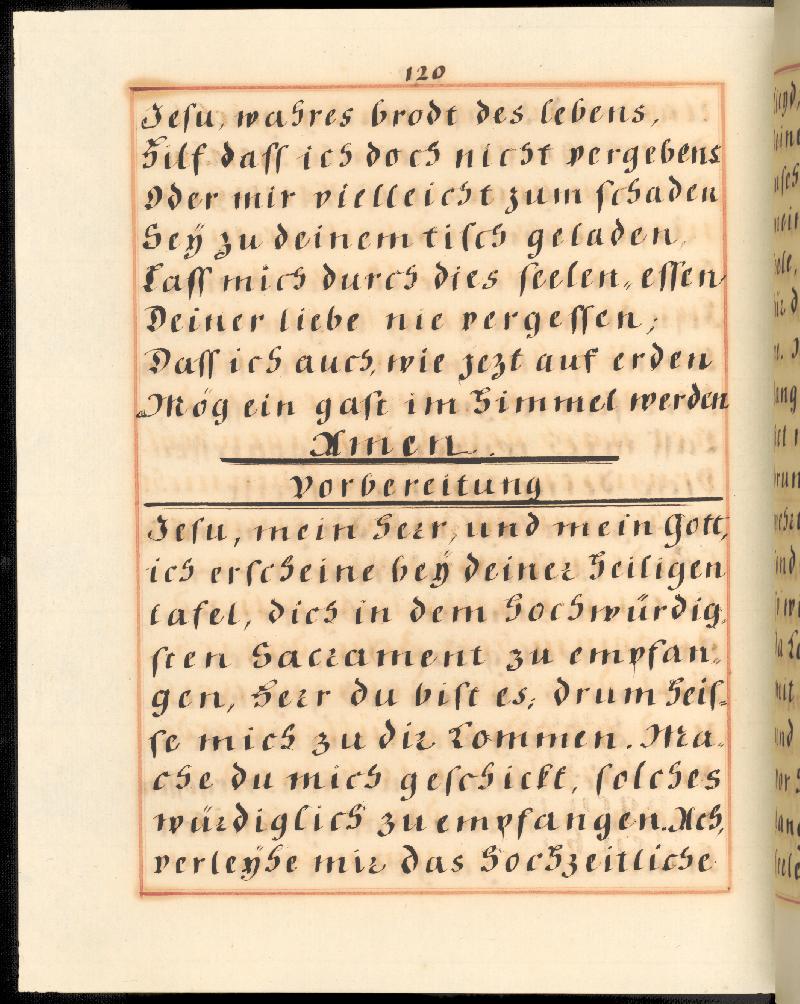 120
Jesu, wahres brodt des lebens,
Hilf daſſ ich doch nicht vergebens
Oder mir vielleicht zum ſchaden
Sey zu deinem tiſch geladen,
Laſſ mich durch dies ſeelen-eſſen
Deiner liebe nie vergeſſen;
Daſſ ich auch, wie jezt auf erden
Mög ein gaſt im Himmel werden
Amen.
Vorbereitung
Jeſu, mein Herr, und mein Gott,
ich erſcheine bey deiner Heiligen
tafel, dich in dem Hochwürdig-
ſten Sacrament zu empfan-
gen, Herr du biſt es, drum Heiſ-
ſe mich zu dir kommen. Ma-
che du mich geſchickt, ſolches
würdiglich zu empfangen. Ach,
verleyhe mir das Hochzeitliche